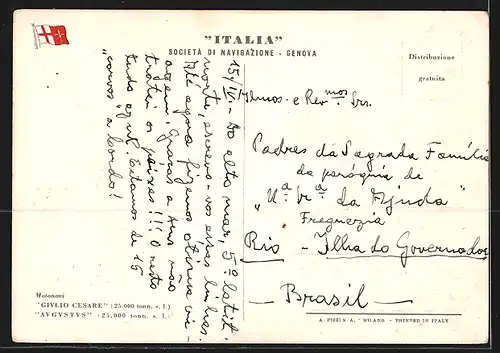 "ITALIA"
SOCIETÀ DI NAVIGAZIONE - GENOVA
Distribuzione
gratuita
15/IV. - Do alto mar, 5º latit.
norte, escrevo-vos estas linhas.
Até agora fizemos otima vi-
agem. Graças a Deus não
tratei os peixes!!! O resto
tudo azul. Estamos de 15
"corvos" a bordo!
Ilmos. e Revmos Srs.
Padres da Sagrada Família
da paróquia de
"Na Sra da Ajuda"
Freguezia
Rio - Ilha do Governador
- Brasil -
Motonavi
"GIVLIO CESARE" (25.000 tonn. s. l.)
"AVGVSTVS" (25.000 tonn. s. l.)
A. PIZZI S. A. - MILANO - PRINTED IN ITALY